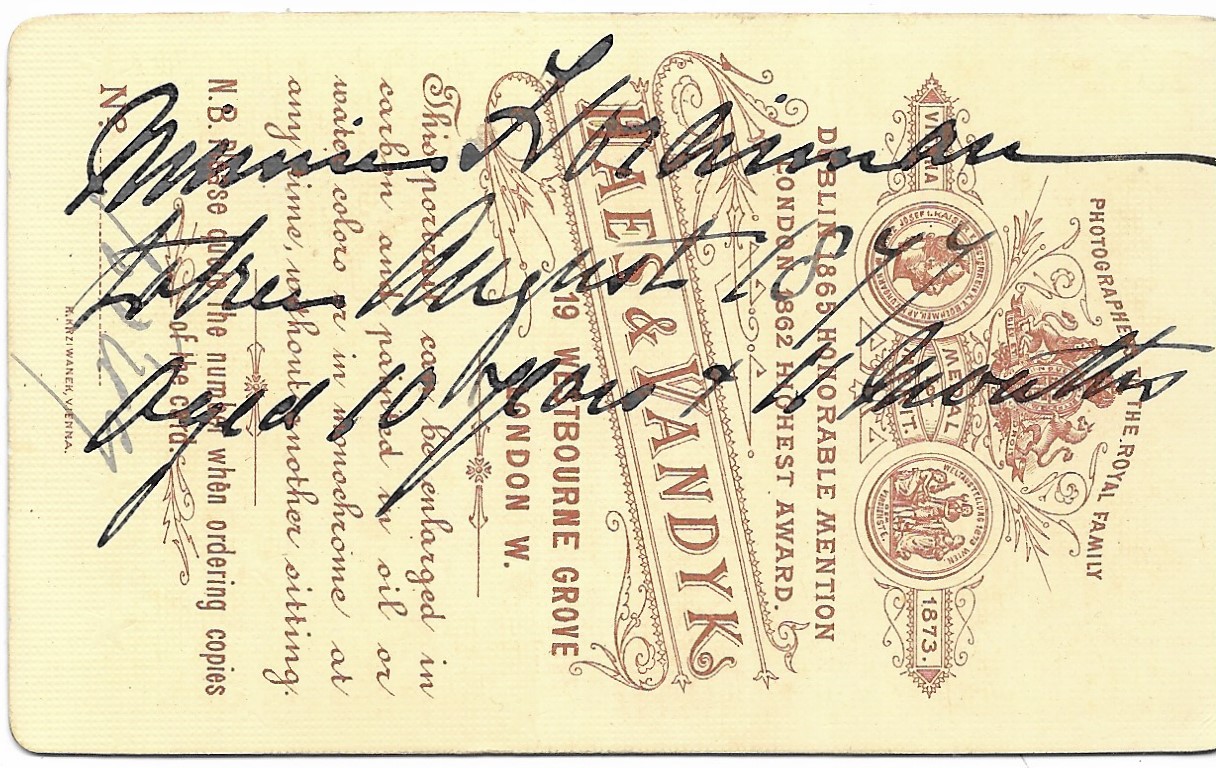 Minnie Horniman
taken August 1877
aged 10 years & 11 Months
PHOTOGRAPHERS TO THE ROYAL FAMILY
VIENNA
MEDAL
1873.
DUBLIN 1865 HONORABLE MENTION
LONDON 1862 HIGHEST AWARD.
HAES & VANDYK
19 WESTBOURNE GROVE
LONDON W.
This portrait can be enlarged in
carbon and painted in oil or
water colors or in monochrome at
any time, without another sitting.
N.B. Please quote the number when ordering copies
of the card
Nº
K.KRZIWANEK, VIENNA.